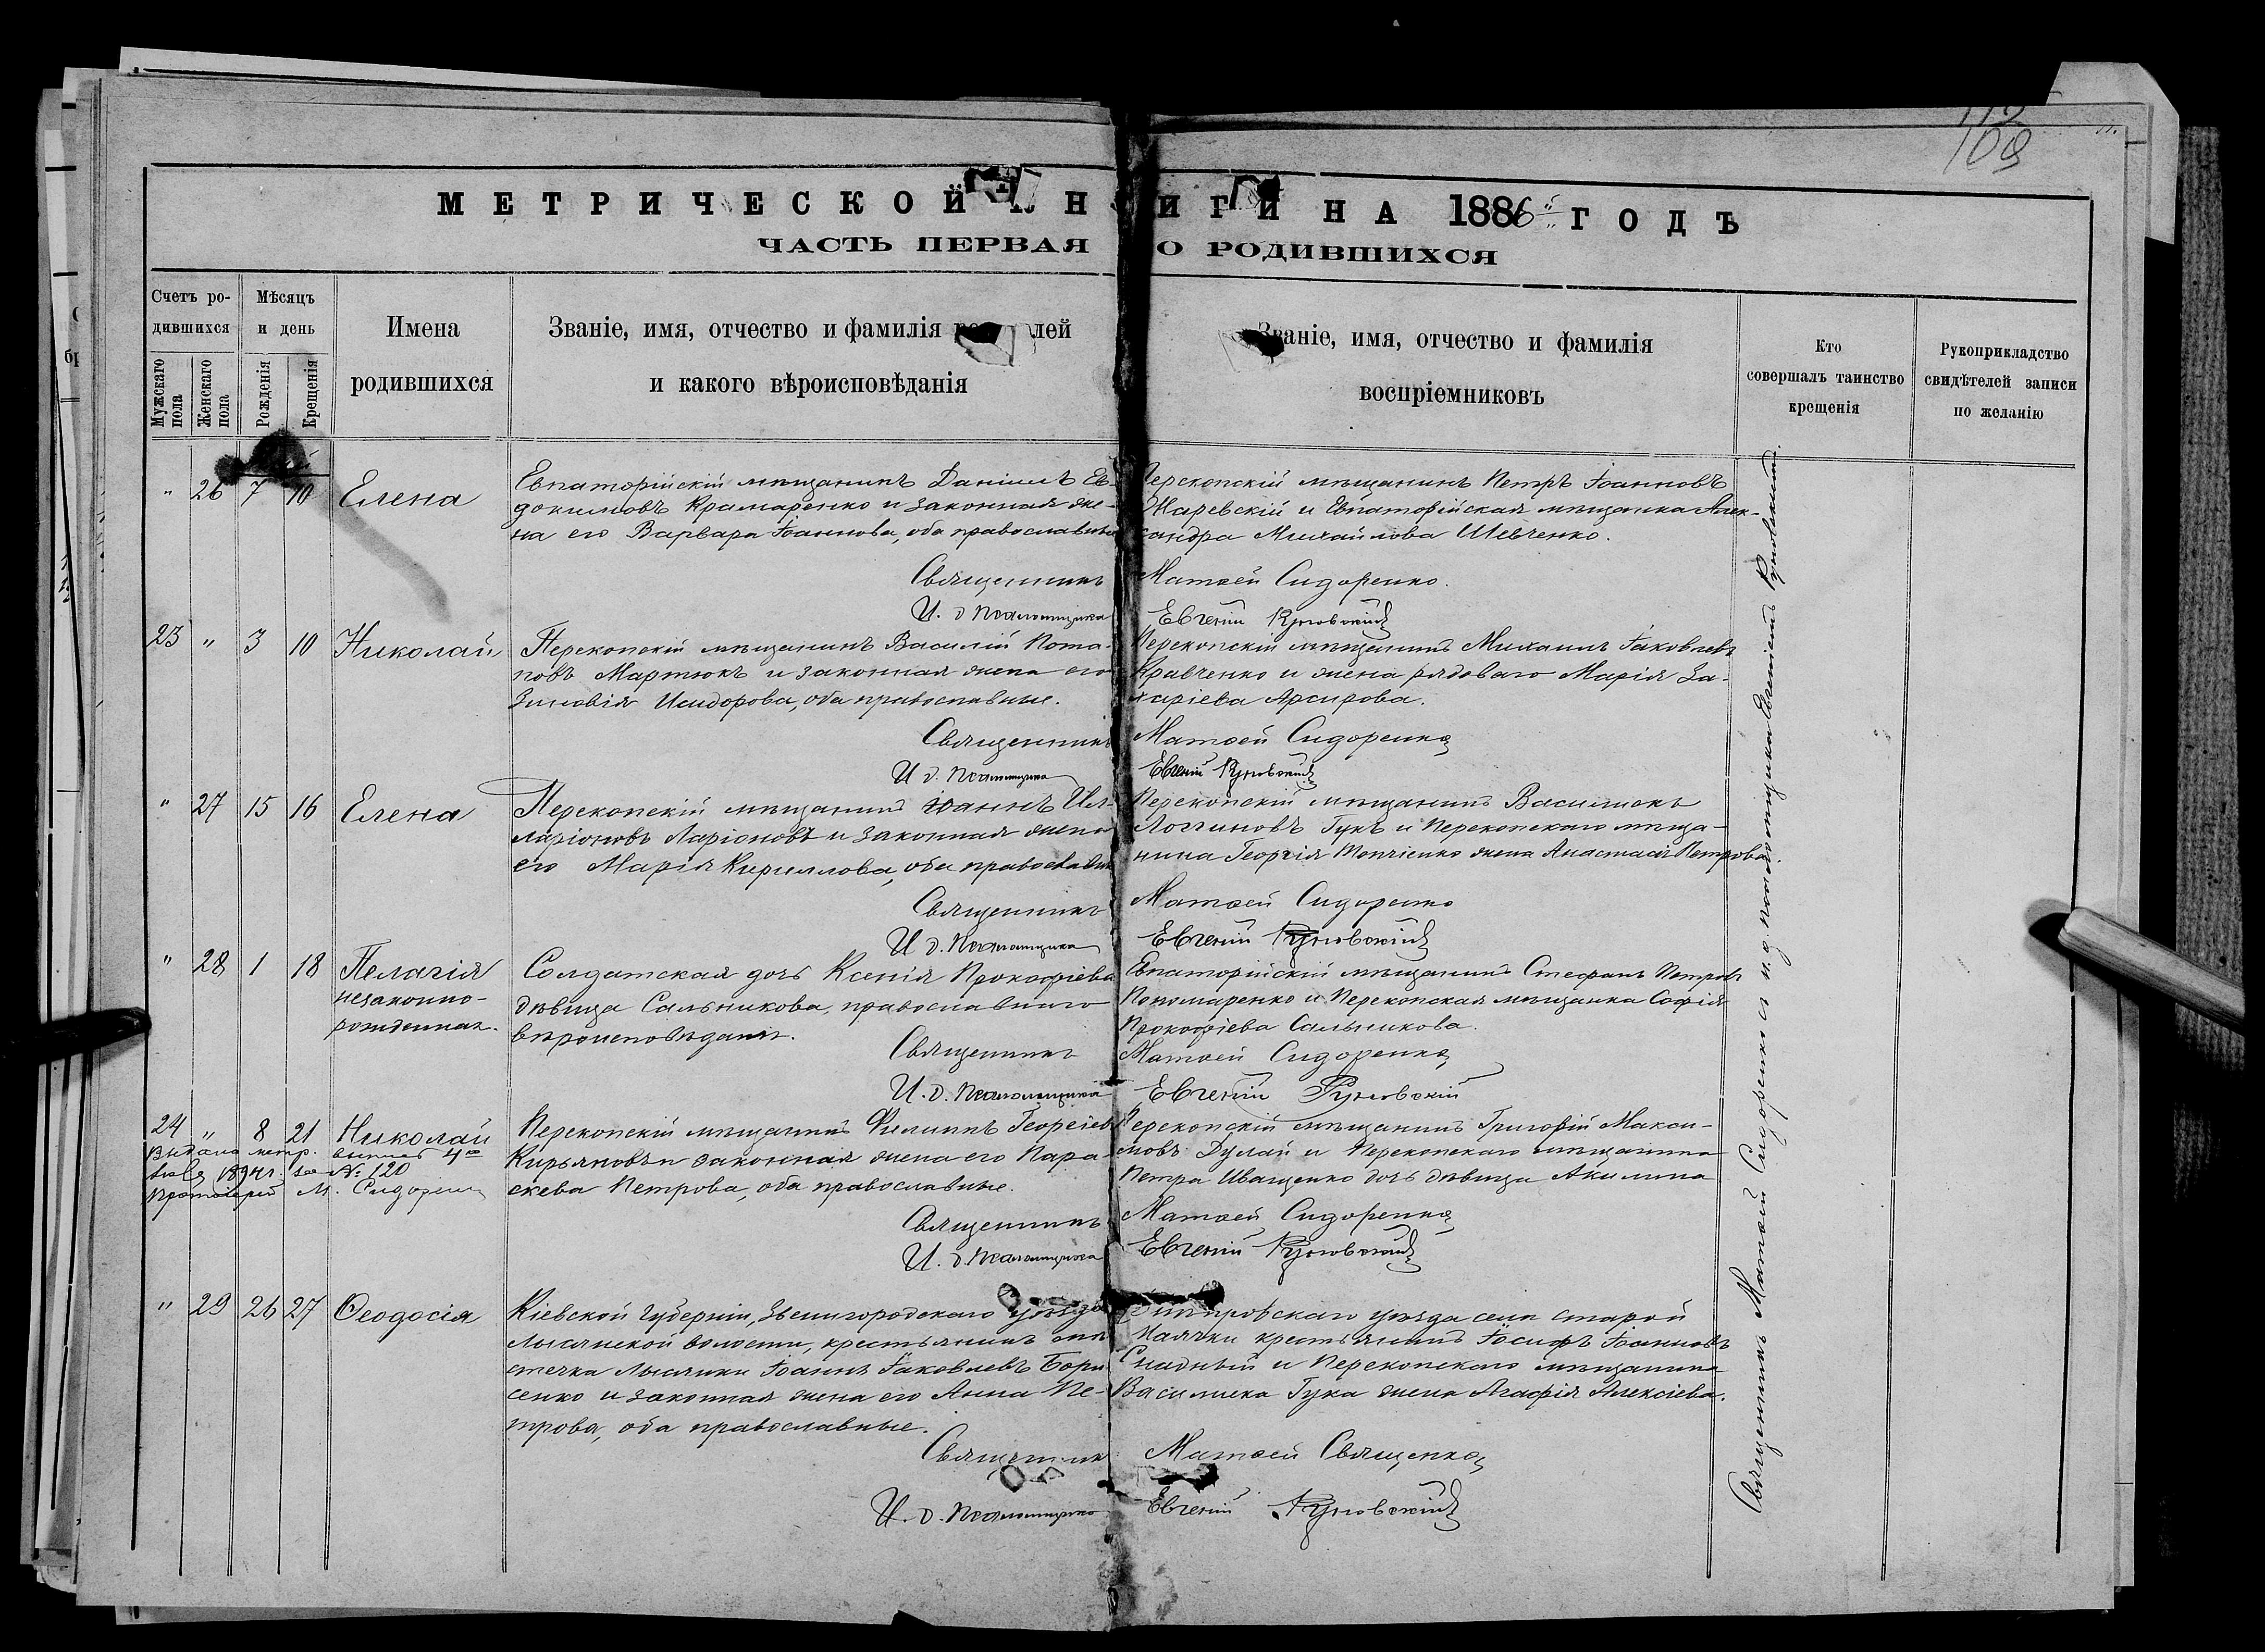 109
МЕТРИЧЕСКОЙ КНИГИ НА 1886 ГОДЪ
ЧАСТЬ ПЕРВАЯ О РОДИВШИХСЯ
Счетъ ро-
дившихся
Мужскаго пола
Женскаго пола
Мѣсяцъ
и день
Рожденія
Крещенія
Имена
родившихся
Званіе, имя, отчество и фамилія лей
и какого вѣроисповѣданія
Званіе, имя, отчество и фамилія
воспріемниковъ
Кто
совершалъ таинство
крещенія
Рукоприкладство
свидѣтелей записи
по желанію
" 26 7 10 Елена
Евпаторійскій мѣщанинъ Даніилъ Ев-
докимовъ Крамаренко и законная же-
на его Варвара Іоаннова, оба православные
Перекопскій мѣщанинъ Петръ Іоанновъ
Жаревскій и Евпаторійская мѣщанка Алек-
сандра Михайлова Шевченко.
Священникъ Матѳей Сидоренко.
И. д. псаломщика Евгеній
23 " 3 10 Николай
Перекопскій мѣщанинъ Василій Пота-
повъ Мартюкъ и законная жена его
Зиновія Исидорова, оба православные.
Перекопскій мѣщанинъ Михаилъ Іаковлевъ
Кравченко и жена рядоваго Марія За-
харіева
Священникъ Матѳей Сидоренко
И. д. псаломщика Евгеній
" 27 15 16 Елена
Перекопскій мѣщанинъ Іоаннъ Ил-
ларіоновъ Ларіоновъ и законная жена
его Марія Кириллова, оба православные
Перекопскій мѣщанинъ Василискъ
Логгиновъ Гукъ и Перекопскаго мѣща-
нина Георгія жена Анастасія Петрова.
Священникъ Матѳей Сидоренко
И. д. псаломщика Евгеній
" 28 1 18 Пелагія
незаконно-
рожденная.
Солдатская дочь Ксенія Прокофіева
дѣвица Сальникова, православнаго
вѣроисповѣданія.
Евпаторійскій мѣщанинъ Стефанъ Петровъ
Пономаренко и Перекопская мѣщанка Софія
Прокофіева Сальникова.
Священникъ Матѳей Сидоренко
И. д. псаломщика Евгеній
24 " 8 21 Николай
Выдана метр. выпись 4го
1894 г. за № 120
Протоіерей М. Сидоренко
Перекопскій мѣщанинъ Филиппъ Георгіевъ
Кирьяновъ и законная жена его Пара-
скева Петрова, оба православные.
Перекопскій мѣщанинъ Григорій Макси-
мовъ Дулай и Перекопскаго мѣщанина
Петра Иващенко дочь дѣвица Акилина
Священникъ Матѳей Сидоренко
И. д. псаломщика Евгеній
" 29 26 27 Ѳеодосія
Кіевской губерніи, Звенигородскаго уѣзда
Лысянской волости, крестьянинъ мѣ-
стечка Лысянки Іоаннъ Іаковлевъ Бори-
сенко и законная жена его Анна Пе-
трова, оба православные.
Днѣпровскаго уѣзда села Старой
Маячки крестьянинъ Іосифъ Іоанновъ
и Перекопскаго мѣщанина
Василиска Гука жена Агафія Алексіева.
Священникъ Матѳей
И. д. псаломщика Евгеній
Священникъ Матѳей Сидоренко съ и. д. псаломщика Евгеніемъ